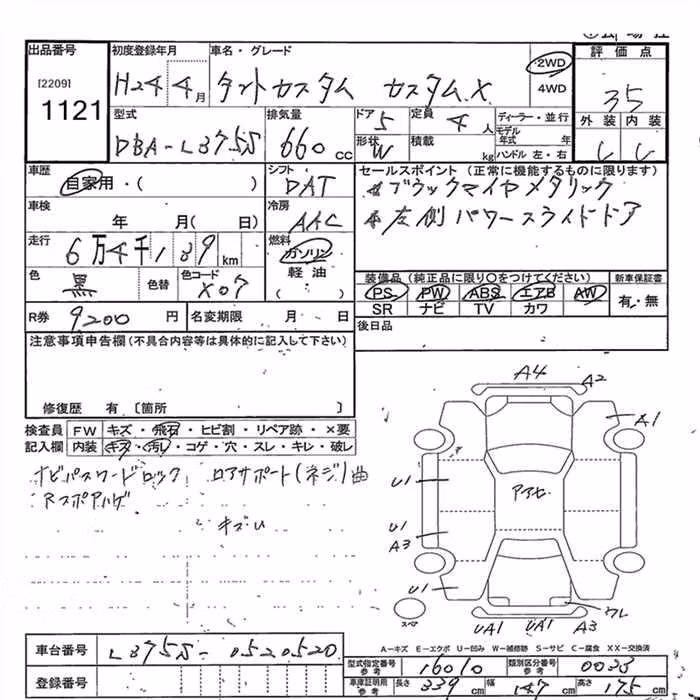 出品番号 初度登録年月 車名・グレード 評価点
[2209] 1121
H24年4月 タントカスタム カスタムX 2WD 4WD 35
型式 排気量 ドア 5 定員 4人 ディーラー・並行 外装 内装
DBA-L375S 660cc 形状 W 積載 kg モデル年式 年 ハンドル 左・右
車歴 シフト セールスポイント (正常に機能するものに限ります)
自家用・( ) DAT ブラックマイカメタリック
車検 冷房 左側パワースライドドア
年 月(日) AAC
走行 燃料
6万4千139km ガソリン
色 色替 色コード 軽油 装備品(純正品に限り○をつけてください) 新車保証書
黒 X07 ( ) PS PW ABS エアB AW 有・無
SR ナビ TV カワ
R券 9,200円 名変期限 月 日 後日品
注意事項申告欄(不具合内容等は具体的に記入して下さい)
修復歴 有〔箇所 〕
検査員 FW キズ・飛石・ヒビ割・リペア跡・×要
記入欄 内装 キズ・汚レ・コゲ・穴・スレ・キレ・破レ
ナビパスワードロック ロアサポート(ネジ)曲
Rスポアハゲ
キズU
A4 A2
A1
U1
U1
A3
U1
ワレ
スペア UA1 UA1 A3
A-キズ E-エクボ U-凹み W-補修跡 S-サビ C-腐食 XX-交換済
車台番号 L375S-0520520
型式指定番号 参考 16010 類別区分番号 参考 0033
登録番号 車庫証明用 参考 長さ 339cm 幅 147cm 高さ 175cm